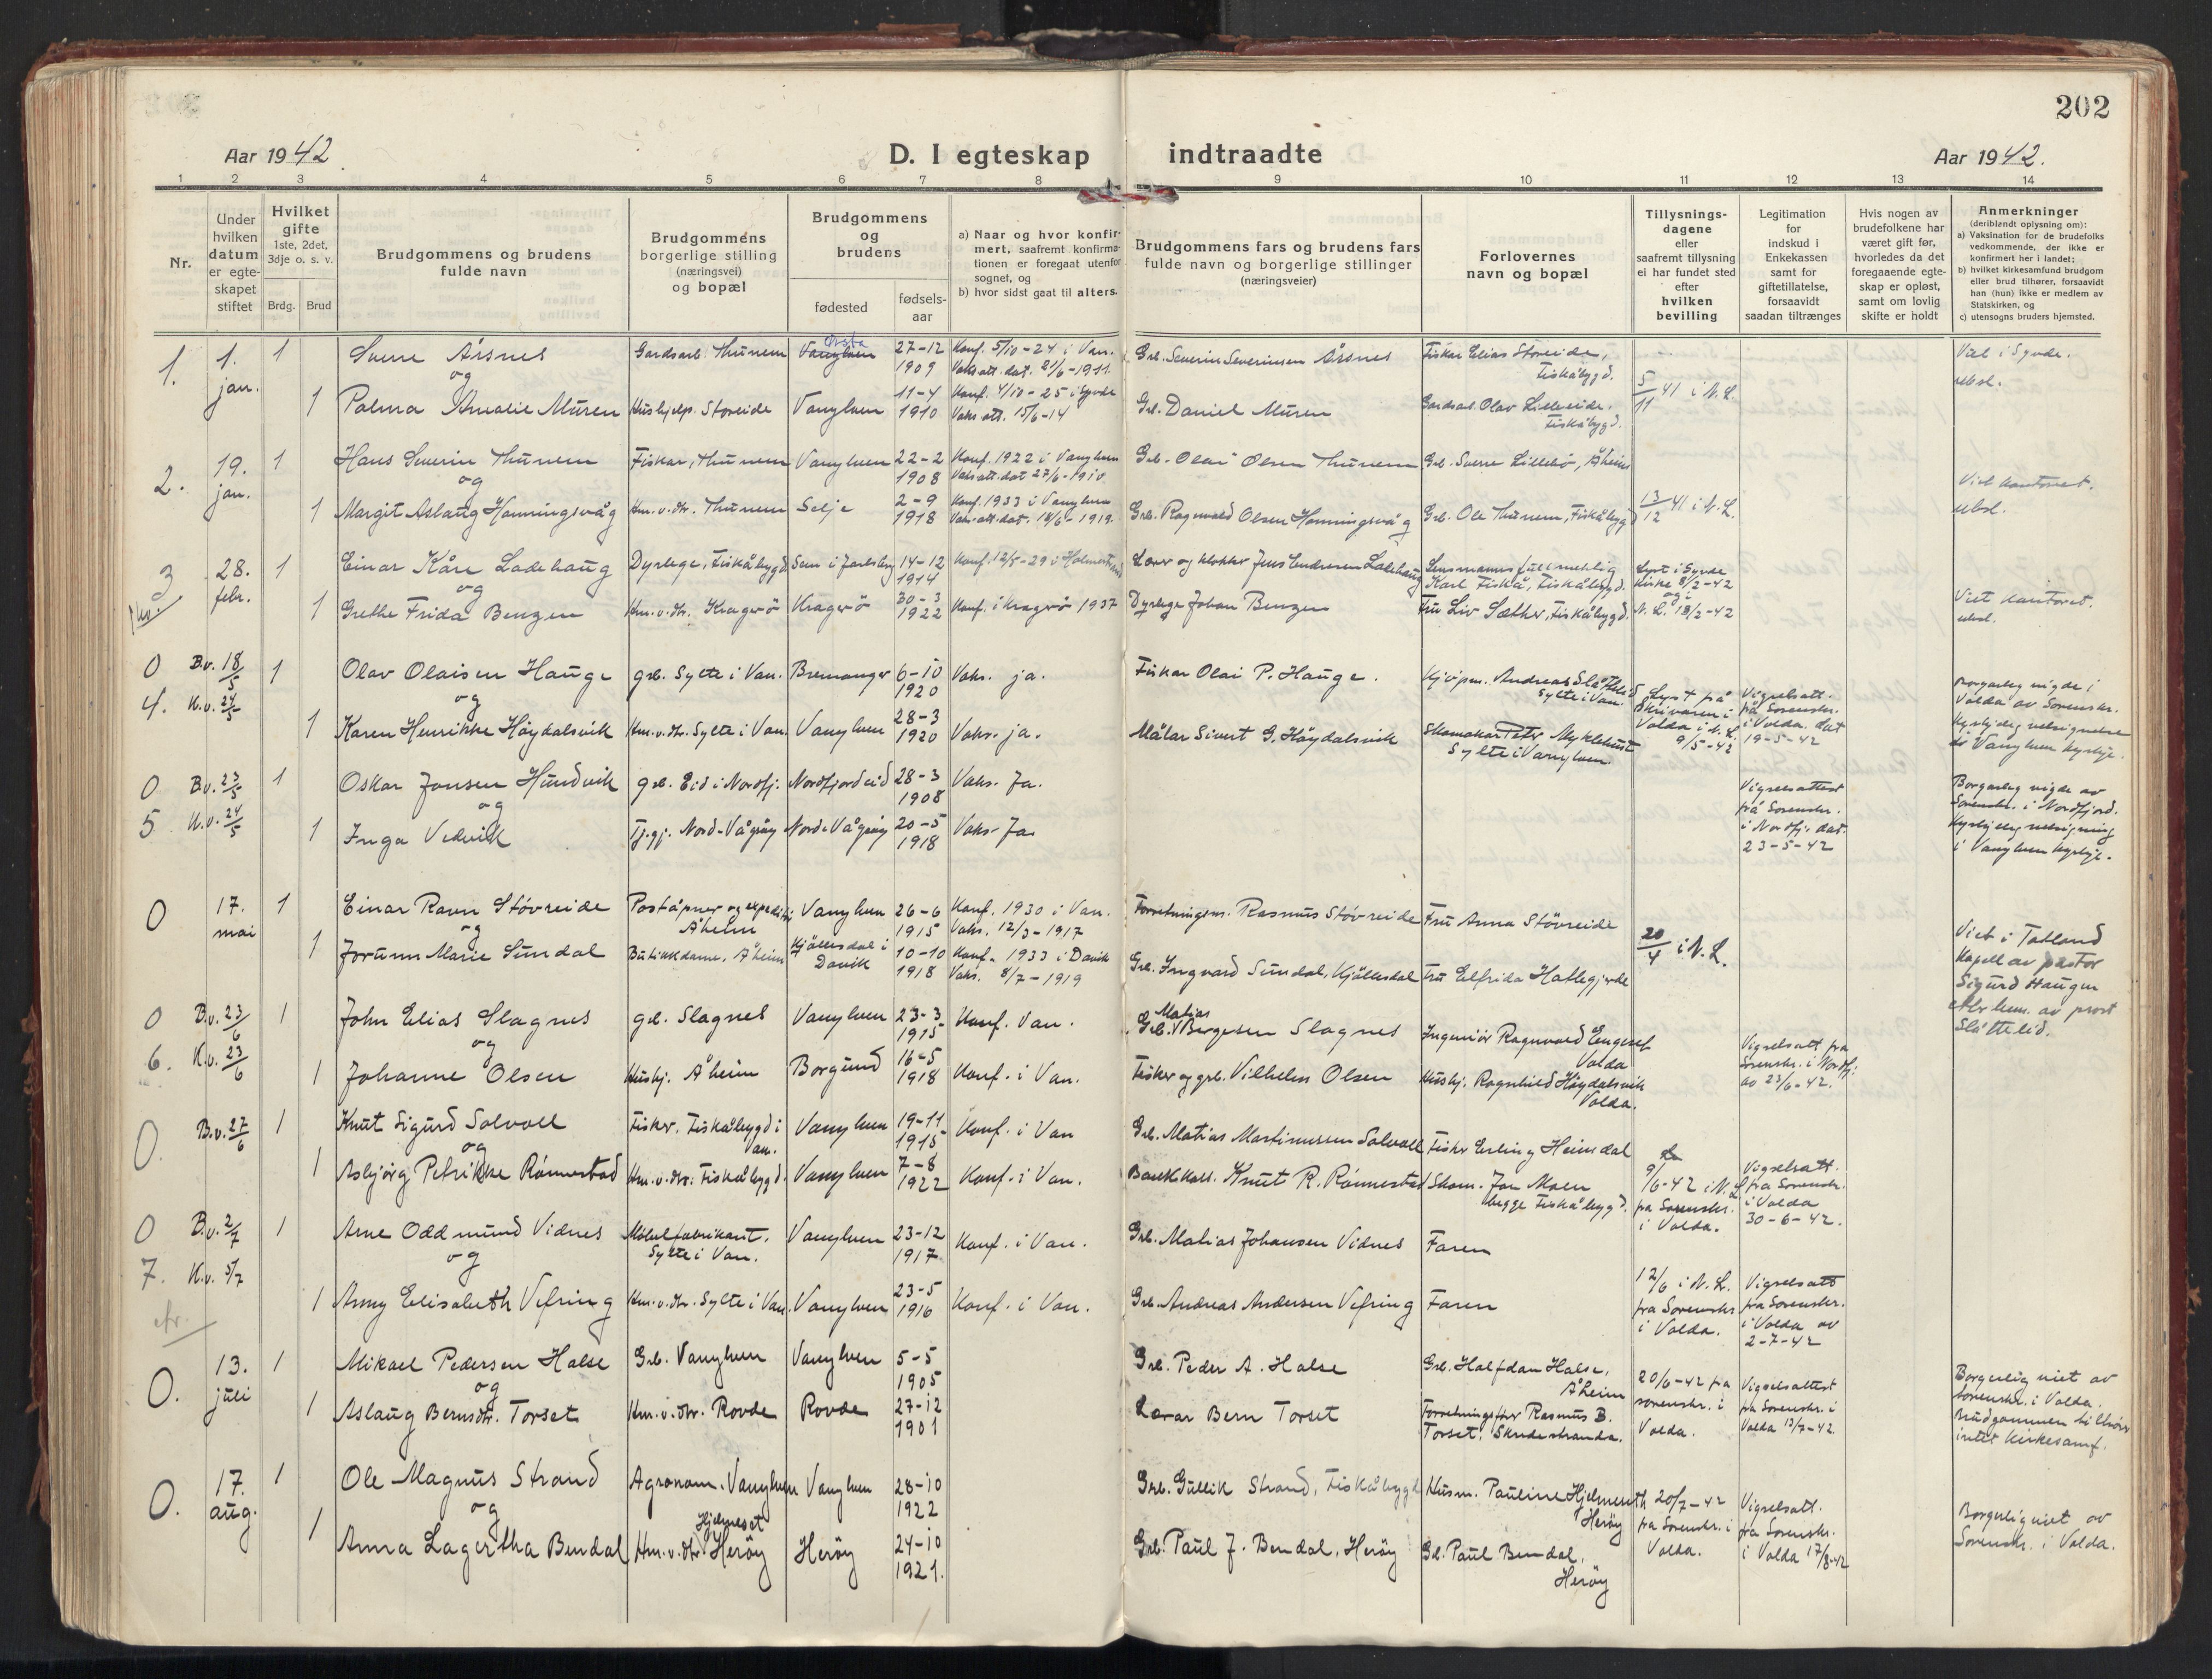 202
Aar 1942
D. I egteskap indtraadte
Aar 1942.
1 2 3 4 5 6 7 8 9 10 11 12 13 14
Nr.
Under hvilken datum er egteskapet stiftet
Hvilket gifte 1ste, 2det, 3dje o. s. v.
Brdg. Brud
Brudgommens og brudens fulde navn
Brudgommens borgerlige stilling (næringsvei) og bopæl
Brudgommens og brudens
fødested
fødselsaar
a) Naar og hvor konfirmert, saafremt konfirmationen er foregaat utenfor sognet, og
b) hvor sidst gaat til alters.
Brudgommens fars og brudens fars fulde navn og borgerlige stillinger (næringsveier)
Forlovernes navn og bopæl
Tillysningsdagene eller saafremt tillysning ei har fundet sted efter hvilken bevilling
Legitimation for indskud i Enkekassen samt for giftetillatelse, forsaavidt saadan tiltrænges
Hvis nogen av brudefolkene har været gift før, hvorledes da det foregaaende egteskap er opløst, samt om lovlig skifte er holdt
Anmerkninger (deriblandt oplysning om):
a) Vaksination for de brudefolks vedkommende, der ikke er konfirmert her i landet;
b) hvilket kirkesamfund brudgom eller brud tilhører, forsaavidt han (hun) ikke er medlem av Statskirken, og
c) utensogns bruders hjemsted.
1. 1. jan. 1 Sverre Årsnes Gardsarb. Thunem Vanylven Ørsta 27-12 1909 Konf. 5/10-24 i Van. Vaks.att. dat. 21/6-1911. Grb. Severin Severinsen Årsnes Fiskar Elias Storeide, Fiskåbygd.
og
1 Palma Amalie Muren Hushjelp. Storeide Vanylven 11-4 1910 Konf. 4/10-25 i Syvde Vaks att. 15/6-14 Grb. Daniel Muren Gardsarb. Olav Lillereide, Fiskåbygd. 5/11 41 i N.L. Viet i Syvde.
2. 19. jan. 1 Hans Severin Thunem Fiskar, Thunem Vanylven 22-2 1908 Konf. 1922 i Vanylven Vaks.att. dat 27/6-1910 Grb. Olai Olsen Thunem Grb. Sverre Lillebø, Åheim
og
1 Margit Aslaug Honningsvåg Hm.v.dtr. Thunem Selje 2-9 1918 Konf. 1933 i Vanylven Vaks.att. dat. 18/6-1919. Grb. Ragnvald Olsen Honningsvåg Grb. Ole Thunem, Fiskåbygd 13/12 41 i N.L. Viet kontoret.
3 28. febr. 1 Einar Kåre Ladehaug Dyrlege, Fiskåbygd Sem i Jarlsberg 14-12 1914 Konf. 12/5-29 i Holmestrand Lærer og klokker Jens Endresen Ladehaug Lensmannsfullmektig Karl Fiskå, Fiskåbygd. Lyst i Syvde Kirke 8/2-42
og
1 Grethe Frida Benzen Hm.v.dtr. Kragerö Kragerö 30-3 1922 Konf. i Kragerö 1937 Dyrlege Johan Benzen Fru Liv Sæther, Fiskåbygd. og i N.L. 13/2-42 Viet kontoret.
0 4. B.v. 18/5 K.v. 24/5 1 Olav Olaisen Hauge grb. Sylte i Van. Bremanger 6-10 1920 Vaks. ja. Fiskar Olai P. Hauge. Kjöpm. Andreas Slåttelid Sylte i Van.
og
1 Karen Henrikke Høydalsvik Hm.v.dtr. Sylte i Van. Vanylven 28-3 1920 Vaks. ja. Målar Sivert G. Høydalsvik Skomakar Petr Myklebust Sylte i Vanylven. Lyst på Skrivaren i Volda i N.L. 9/5-42 Vigselsatt. frå Sorenskr. i Volda. dat 19-5-42 Borgarleg vigde i Volda av Sorenskr. Kyrkjeleg velsignelse i Vanylven kyrkje.
0 5 B.v. 23/5 K.v. 24/5 1 Oskar Jonsen Hundvik grb. Eid i Nordfj. Nordfjordeid 28-3 1908 Vaks. Ja. Vigselsattest frå Sorenskr. i Nordfj. dat. 23-5-42 Borgarleg vigde av Sorenskr. i Nordfjord. Kyrkjeleg velsigning i Vanylven kyrkje.
og
1 Inga Vedvik Tj.gj. Nord-Vågsøy Nord-Vågsøy 20-5 1918 Vaks. Ja.
0 17. mai 1 Einar Ravn Stövreide Poståpner og expeditør Åheim Vanylven 26-6 1915 Konf. 1930 i Van. Vaks. 12/3-1917 Forretningsm. Rasmus Stövreide Fru Anna Stövreide
og
1 Jorunn Marie Sundal Butikkdame, Åheim Kjöllesdal i Davik 10-10 1918 Konf. 1933 i Davik Vaks. 8/7-1919 Grb. Ingvard Sundal, Kjöllesdal Fru Elfrida Hatlegjerde 20/4 i N.L. Viet i Tolland Kapell av pastor Sigurd Haugen etter hem. av prost Slåttelid.
0 6. B.v. 23/6 K.v. 23/6 1 John Elias Slagnes grb. Slagnes Vanylven 23-3 1915 Konf. Van. Grb. Matias Bergesen Slagnes Ingeniör Ragnvald Engeset Volda
og
1 Johanne Olsen Hushj. Åheim Borgund 16-5 1918 Konf. i Van. Fisker og grb. Vilhelm Olsen Hushj. Ragnhild Høydalsvik Volda. Vigselsatt fra Sorenskr. i Nordfj. av 23/6-42.
0. B.v. 27/6 1 Knut Sigurd Solvoll Fisker. Fiskåbygd i Van. Vanylven 19-11 1915 Konf. i Van Grb. Matias Martinussen Solvoll Fisker Erling Heimdal
og
1 Asbjørg Petrikke Rönnestad Hm.v.dtr. Fiskåbygd. Vanylven 7-8 1922 Konf. i Van. Bankkass. Knut R. Rönnestad Skom. Jon Moen begge Fiskåbygd. 9/6-42 i N.L. fra Sorenskr. i Volda. Vigselsatt. fra Sorenskr. i Volda 30-6-42.
0 7. B.v. 2/7 K.v. 5/7 1 Arne Oddmund Vidnes Möbelfabrikant, Sylte i Van. Vanylven 23-12 1917 Konf. i Van. Grb. Matias Johansen Vidnes Faren
og
1 Anny Elisabeth Vefring Hm.v.dtr. Sylte i Van. Vanylven 23-5 1916 Konf. i Van. Grb. Andreas Andersen Vefring Faren 12/6 i N.L. fra Sorenskr i Volda. Vigselsatt fra Sorenskr. i Volda av 2-7-42
0. 13. juli 1 Mikael Pedersen Halse Grb. Vanylven Vanylven 5-5 1905 Grb. Peder A. Halse Grb. Halfdan Halse, Åheim
og
1 Aslaug Bernsdtr. Torset Hm.v.dtr. Rovde Rovde 27-12 1901 Lærar Bern Torset Forretningsförer Rasmus B. Torset, Skudestranda. 20/6-42 fra sorenskr. i Volda. Vigselsattest fra Sorenskr. i Volda 13/7-42. Borgerlig viet av Sorenskr. i Volda. Brudgommen tilhörer intet kirkesamf.
0. 17. aug. 1 Ole Magnus Strand Agronom. Vanylven Vanylven 28-10 1922 Grb. Gullik Strand, Fiskåbygd Husm. Pauline Hjelmeseth Herøy
og
1 Anna Lagertha Bendal Hm.v.dtr. Hjelmeset Herøy Herøy 24-10 1921. Grb. Paul J. Bendal, Herøy Gb. Paul Bendal, Herøy 20/7-42 fra Sorenskr. i Volda. Vigselsatt. fra Sorenskr. i Volda 17/8-42 Borgerlig viet av Sorenskr. i Volda.